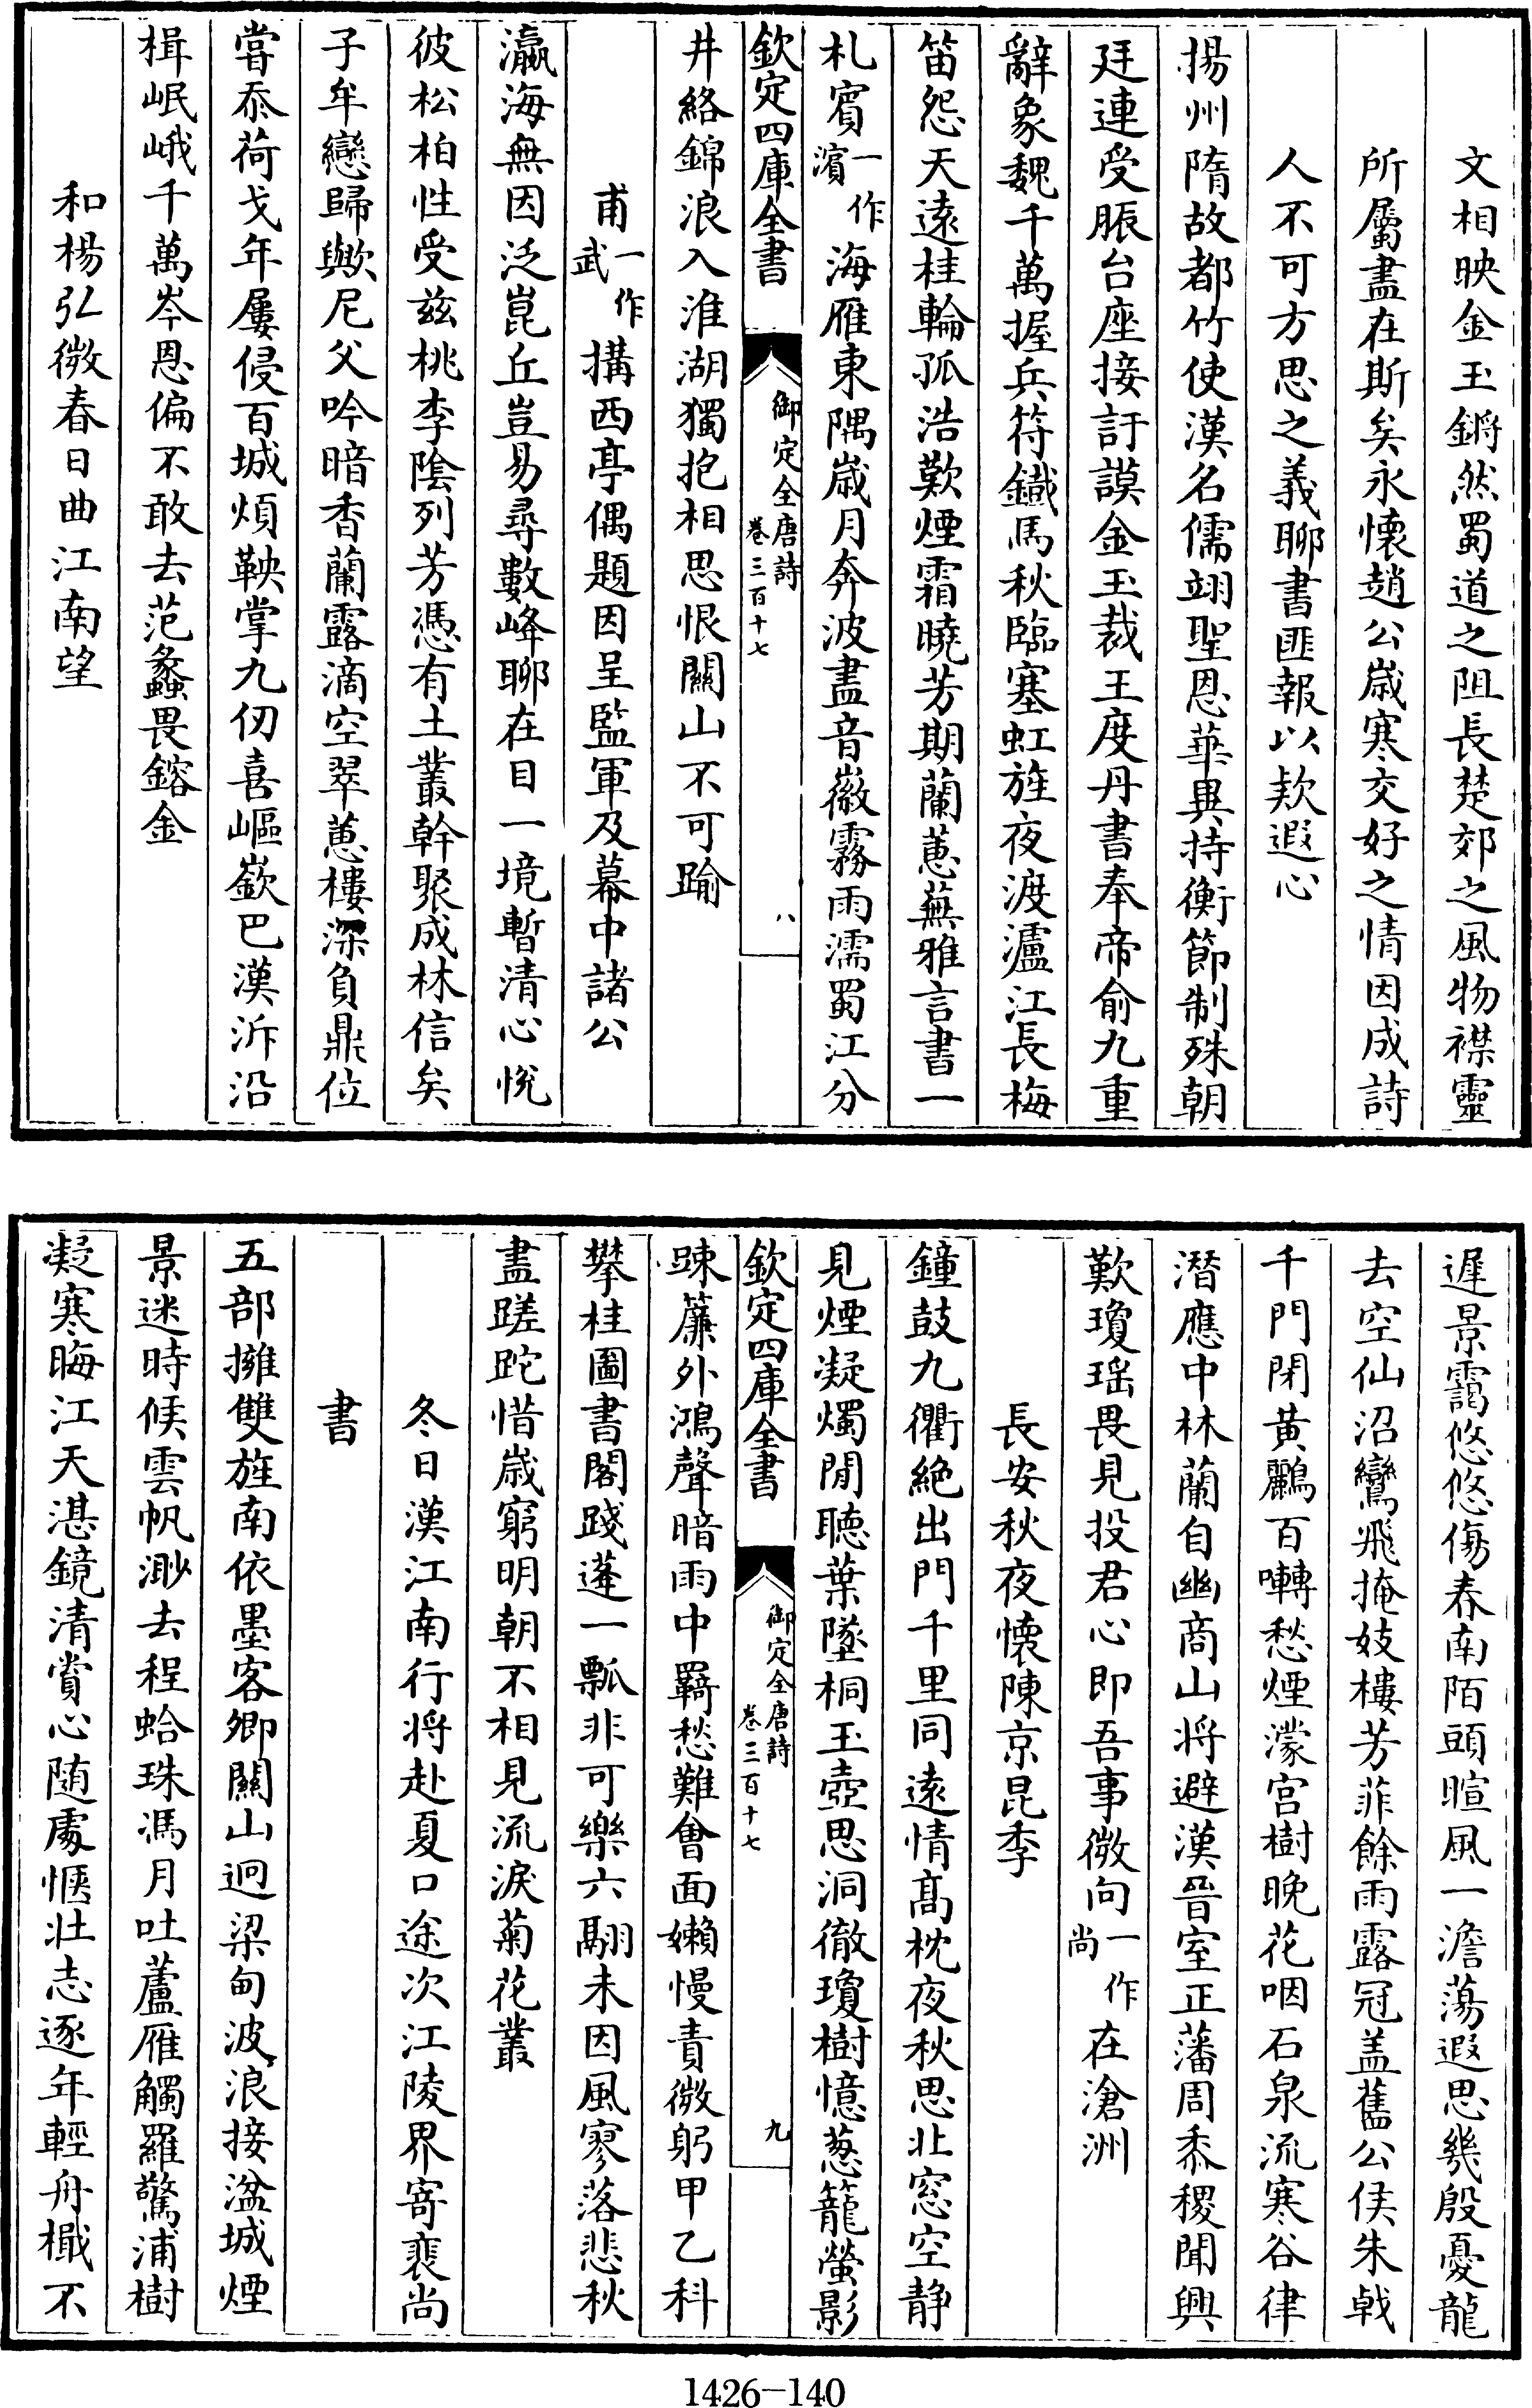 文相映金玉鏘然蜀道之阻長楚郊之風物襟靈
所屬盡在斯矣永懷趙公歲寒交好之情因成詩
人不可方思之義聊書匪報以欵遐心
揚州隋故都竹使漢名儒翊聖恩華異持衡節制殊朝
廷連受脤台座接訏謨金玉裁王度丹書奉帝俞九重
辭象魏千萬握兵符鐵馬秋臨塞虹旌夜渡瀘江長梅
笛怨天遠桂輪孤浩歎煙霜曉芳期蘭蕙蕪雅言書一
札賓一作濱海雁東隅歲月奔波盡音徽霧雨濡蜀江分
欽定四庫全書 御定全唐詩 卷三百十七 八
井絡錦浪入淮湖獨抱相思恨關山不可踰
甫一作武搆西亭偶題因呈監軍及幕中諸公
瀛海無因泛崑丘豈易尋數峰聊在目一境暫清心悅
彼松柏性受兹桃李陰列芳憑有土叢幹聚成林信矣
子牟戀歸歟尼父吟暗香蘭露滴空翠蕙樓深負鼎位
嘗忝荷戈年屢侵百城煩鞅掌九仞喜嶇嶔巴漢泝沿
楫岷峨千萬岑恩偏不敢去范蠡畏鎔金
和楊弘微春日曲江南望
遲景靄悠悠傷春南陌頭暄風一澹蕩遐思幾殷憂龍
去空仙沼鸞飛掩妓樓芳菲餘雨露冠盖舊公侯朱戟
千門閉黃鸝百囀愁煙濛宮樹晚花咽石泉流寒谷律
潜應中林蘭自幽商山将避漢晉室正藩周黍稷聞興
歎瓊瑶畏見投君心即吾事微向一作尚在滄洲
長安秋夜懷陳京昆季
鐘鼓九衢絶出門千里同遠情髙枕夜秋思北窓空静
見煙凝燭閒聽葉墜桐玉壺思洞徹瓊樹憶葱籠螢影
欽定四庫全書 御定全唐詩 卷三百十七 九
踈簾外鴻聲暗雨中羇愁難會面嬾慢責微躬甲乙科
攀桂圖書閣踐蓬一瓢非可樂六翮未因風寥落悲秋
盡蹉跎惜歲窮明朝不相見流淚菊花叢
冬日漢江南行将赴夏口途次江陵界寄裴尚
書
五部擁雙旌南依墨客卿關山迥梁甸波浪接湓城煙
景迷時候雲帆渺去程蛤珠馮月吐蘆雁觸羅驚浦樹
凝寒晦江天湛鏡清賞心随處愜壯志逐年輕舟檝不
1426-140